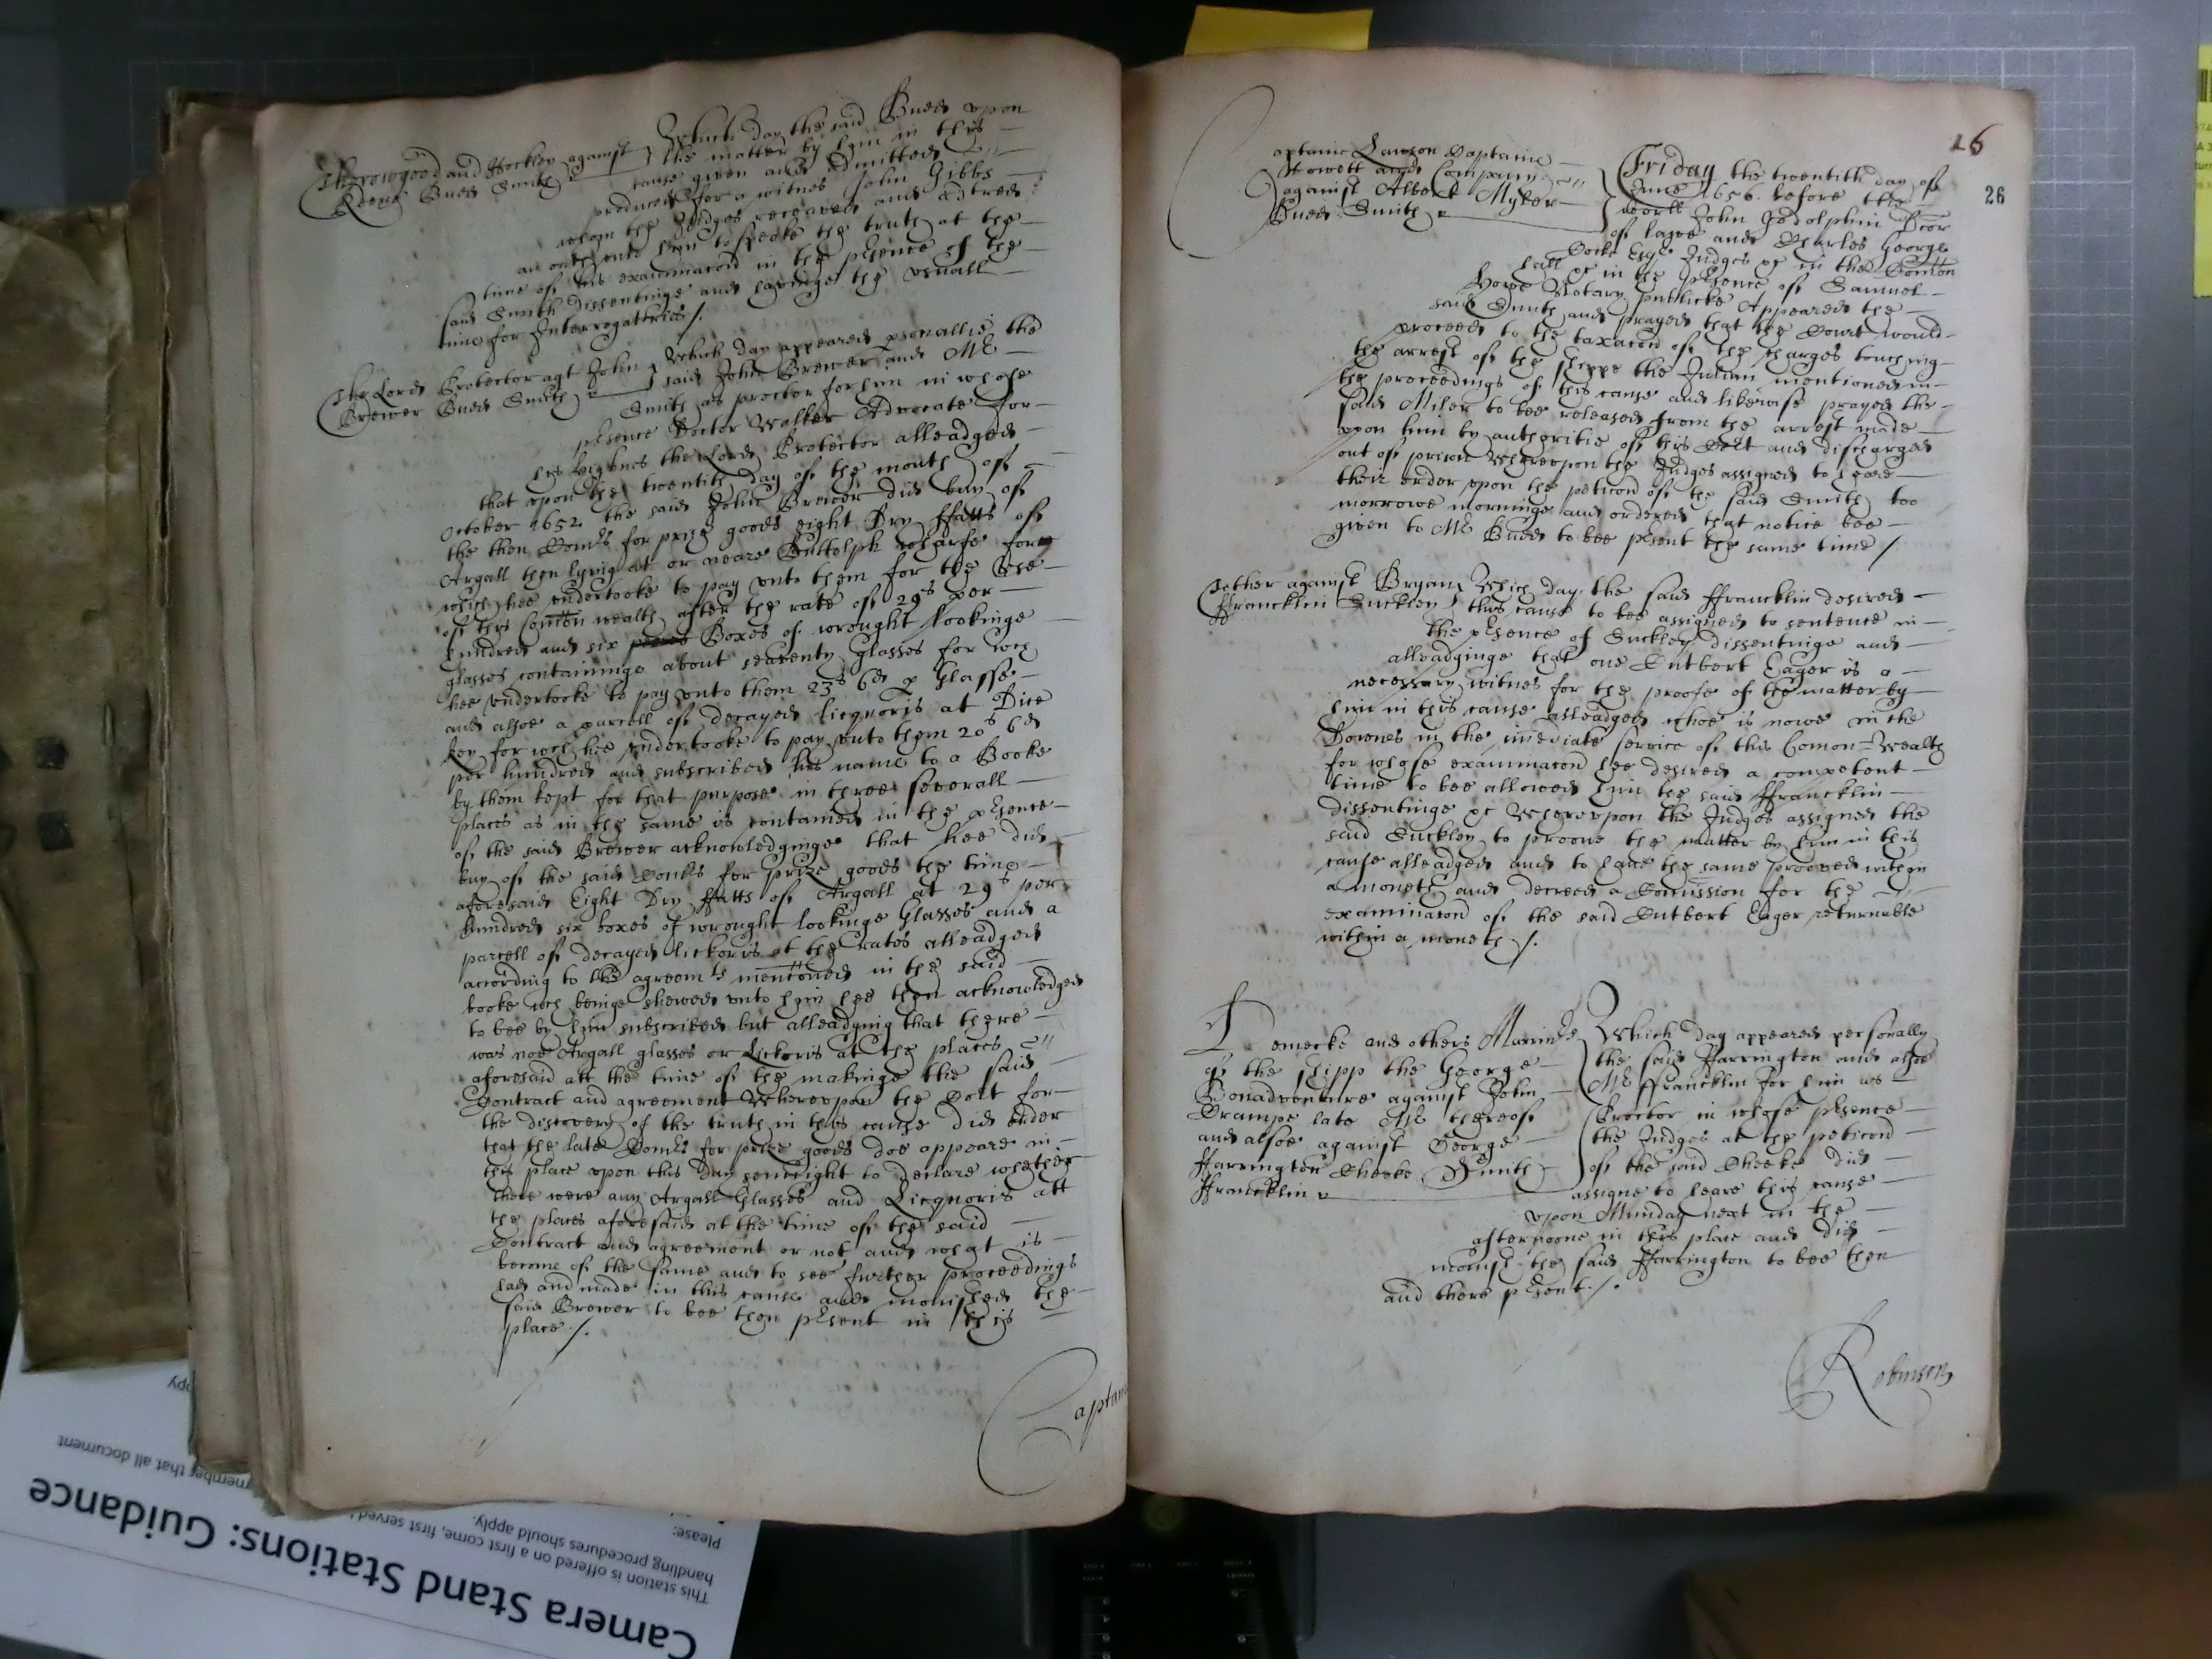 Throwgood and Hockley against
Budd Smith
Which day the said Budd upon
the matter by him in this
cause given and admitted
produced for a witnes John Gibbs
whom the Judges received and
an oath unto him to speake the truth at the
time of his examinacon in the pñsence of the
said Smith dissentinge and haveinge the usuall
time for Interrogatries /.
The Lord Protector agt John
Brewer Budd Smith
Which day appeared psonallie the
said John Brewer and Mr
Smith as proctor for him in whose
pñsence Doctor Walker Advocate for
his highnes the Lord Protector alleadged
that upon the twentith day of the month of
October 1652 the said John Brewer did buy of
the then Comrs for prize goods eight Dry ffatts of
Argall then lying at or neare Buttolph wharfe for
which hee undertooke to pay unto them for the use
of this Comon wealth after the rate of 29s per
hundred and six Boxes of wrought lookinge
glasses containinge about seaventy glasses for wch
hee undertooke to pay unto them 23s 6d p Glasse
and alsoe a parcell of decayed licquoris at Dice
key for wch hee undertooke to pay unto them 20s 6d
per hundred and subscribed his name to a Booke
by them kept for that purpose in three severall
places as in the same is contained in the pñsence
of the said Brewer acknowledginge that hee did
buy of the said Comrs for prize goods the time
aforesaid Eight Dry ffatts of Argall at 29s per
hundred six boxes of wrought lookinge Glasses and a
parcell of decayed lickoris at the rates alleadged
according to the agreemts mentoned in the said
booke wch beinge shewed unto him hee then acknowledged
to bee by him subscribed but alleadging that there
was noe Argall glasses or Lickoris at the places
aforesaid att the time of the makinge the said
Contract and agreement Whereupon the Cort for
the discovery of the truth in this cause did order
that the late Comrs for prize goods doe appeare in
this place upon this day senright to declare whether
there were any Argall Glasses and Licquoris att
the places aforesaid at the time of the said
Contract and agreement or not and what is
become of the same and to see further proceedings
had and made in this cause and monished the
said Brewer to bee then pñsent in this
place /.
Captaine
16
26
Captaine Lawson Captaine
Howett and Company
against Albert Myler
Budd Smith
Friday the twentith day of
June 1656 before the
worll John Godolphin Dcor
of lawes and Charles George
Cocke Esqr Judges &c in the Comon
hall &c in the pñsence of Samuel
Howe Notary publicke Appeared the
said Smith and prayed that the Court would
proceed to the taxacon of the charges touching
the arrest of the shippe the Julian mentioned in
the proceedings of this cause and likewise prayed the
said Miler to bee released from the arrest made
upon him by authoritie of this Cort and discharged
out of prison Whereupon the Judges assigned to heare
their order upon the peticon of the said Smith too
morrowe morninge and ordered that notice bee
given to Mr Budd to bee pñsent the same time /.
Jether against Bryan
ffrancklin Suckley
Which day the said ffrancklin desired
this cause to bee assigned to sentence in
the pñsence of Suckley dissentinge and
alleadginge that one Cutbert Eager is a
necessary witnes for the proofe of the matter by
him in this cause alleadged whoe is nowe in the
Downes in the imediate service of this Comon-Wealth
for whose examinacon hee desired a competent
time to bee allowed him the said ffrancklin
dissentinge &c Whereupon the Judges assigned the
said Suckley to proove the matter by him in this
cause alleadged and to have the same prooved within
a moneth and decreed a Comission for the
examinacon of the said Cutbert Eager returnable
within a moneth /.
Lemecke and others Marinrs
of the shipp the George
Bonadventure against John
Crampe late Mr thereof
and alsoe against George
Harrington Cheeke Smith
ffrancklin
Which day appeared personally
the said Harrington and alsoe
Mr ffrancklin for him as
Proctor in whose pñsence
the Judges at the peticon
of the said Cheeke did
assigne to heare this cause
upon Munday next in the
afternoone in this place and did
monish the said Harrington to bee then
and there pñsent /.
Robinson
Camera Stand Stations: Guidance
This station is offered on a first come, first served
handling procedures should apply.
Please:
member that all document